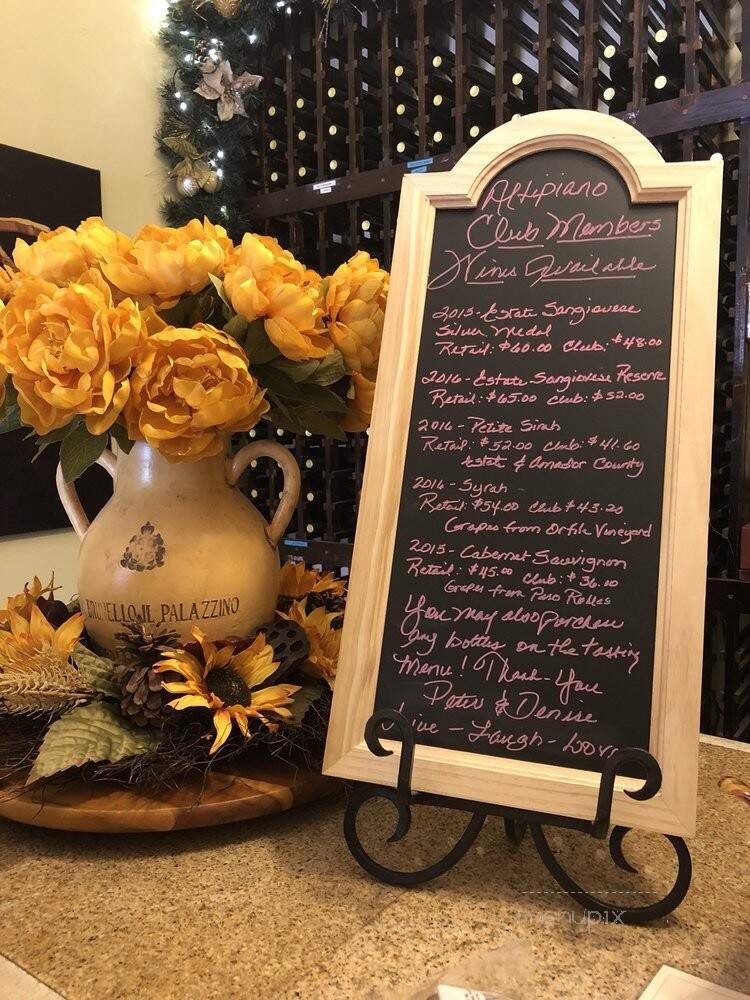 Altipiano
Club Members
Wines Available
2015-Estate Sangiovese
Silver Medal
Retail: $60.00 Club: $48.00
2016-Estate Sangiovese Reserve
Retail: $65.00 Club: $52.00
2016-Petite Sirah
Retail: $52.00 Club: $41.60
Estate & Amador County
2016-Syrah
Retail: $54.00 Club $43.20
Grapes from Orfila Vineyard
2015-Cabernet Sauvignon
Retail: $45.00 Club: $36.00
Grapes from Paso Robles
You may also purchase
any bottles on the tasting
Menu! Thank-You
Peter & Denise
Live-Laugh-Love
BRUNELLO IL PALAZZINO
menupix